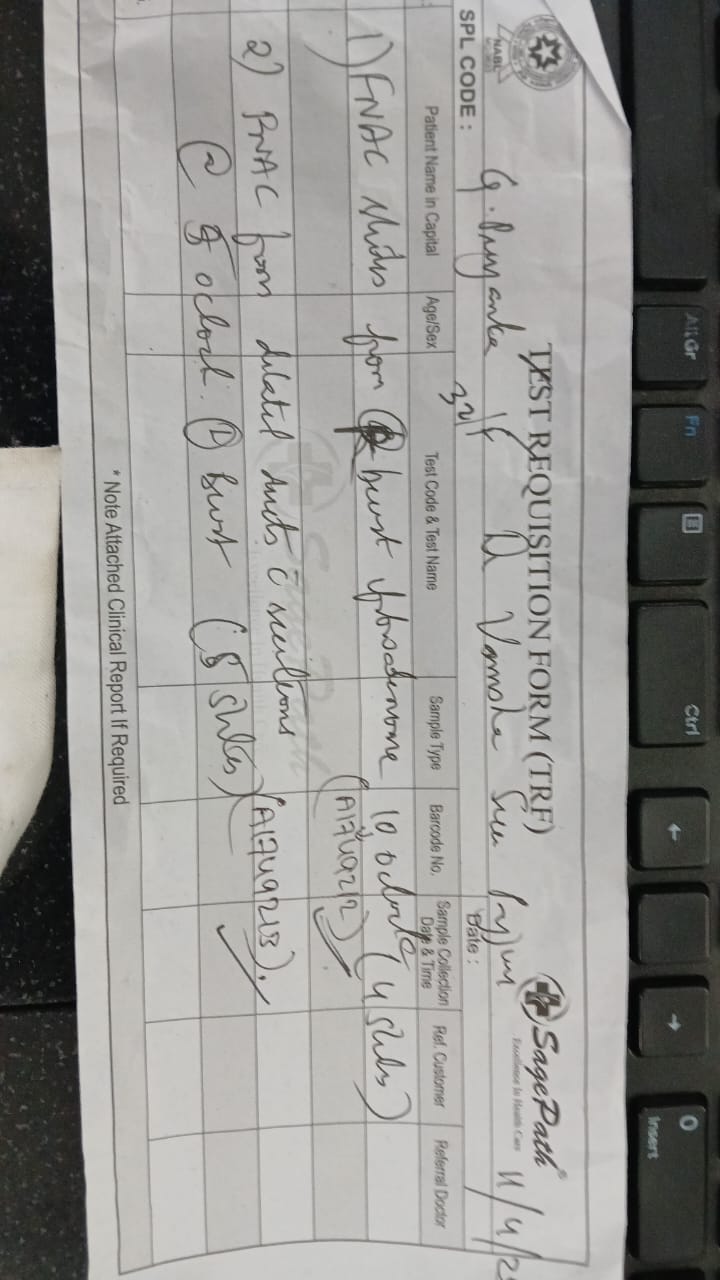 NABL
TEST REQUISITION FORM (TRF)
SagePath®
Excellence In Health Care
SPL CODE :
G. Priyanka
32/F
Dr Vamsha Sree
11/4/2
Date :
Patient Name in Capital Age/Sex Test Code & Test Name Sample Type Barcode No. Sample Collection Date & Time Ref. Customer Referral Doctor
1) FNAC slides from breast fibroadenoma 10 oclock (4 slides)
(A1749212)
2) FNAC from dilated ducts c̄ secretions (A1749213).
@ oclock. breast (5 slides)
* Note Attached Clinical Report If Required
Alt Gr
Fn
Ctrl
←
→
0
Insert